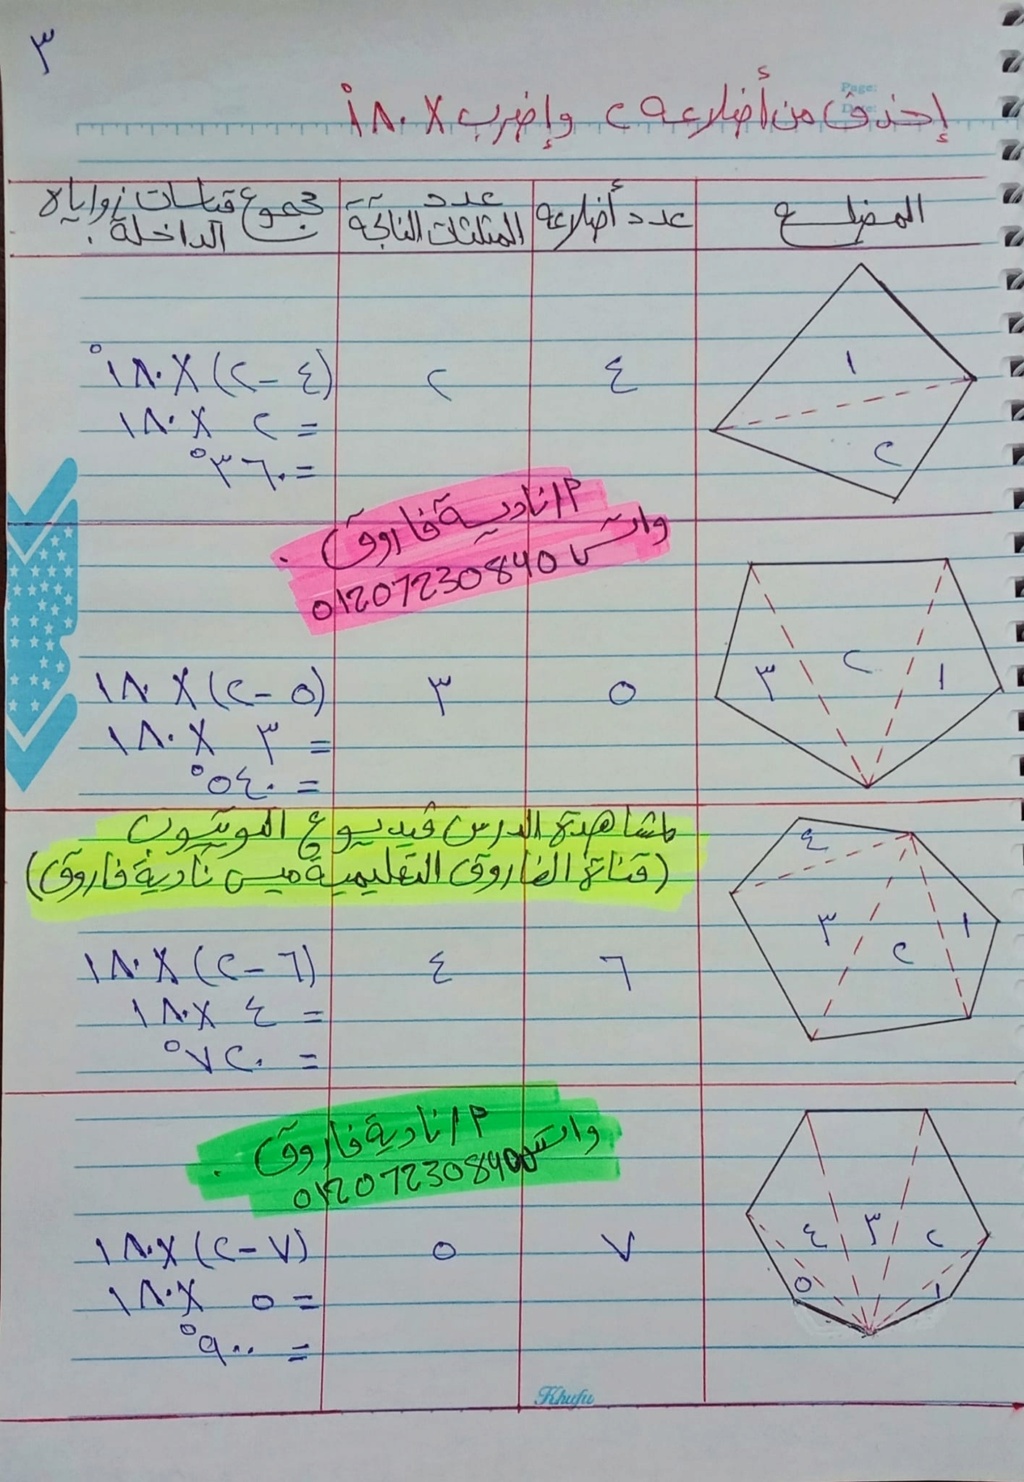 ٣
Page:
Date:
إحذف من أضلاعه ٢ وإضرب × ١٨٠°
المضلع
عدد أضلاعه
عدد المثلثات الناتجة
مجموع قياسات زواياه الداخلة.
١
٢
٤
٢
(٤ - ٢) × ١٨٠°
= ٢ × ١٨٠
= ٣٦٠°
م/ نادية فاروق.
واتس 01207230840
٣
٢
١
٥
٣
(٥ - ٢) × ١٨٠
= ٣ × ١٨٠
= ٥٤٠°
لمشاهدة الدرس فيديو ع اليوتيوب
(قناة الفاروق التعليمية ميس نادية فاروق)
٤
٣
٢
١
٦
٤
(٦ - ٢) × ١٨٠
= ٤ × ١٨٠
= ٧٢٠°
م/ نادية فاروق.
واتس 01207230840
٥
٤
٣
٢
١
٧
٥
(٧ - ٢) × ١٨٠
= ٥ × ١٨٠
= ٩٠٠°
Khufu